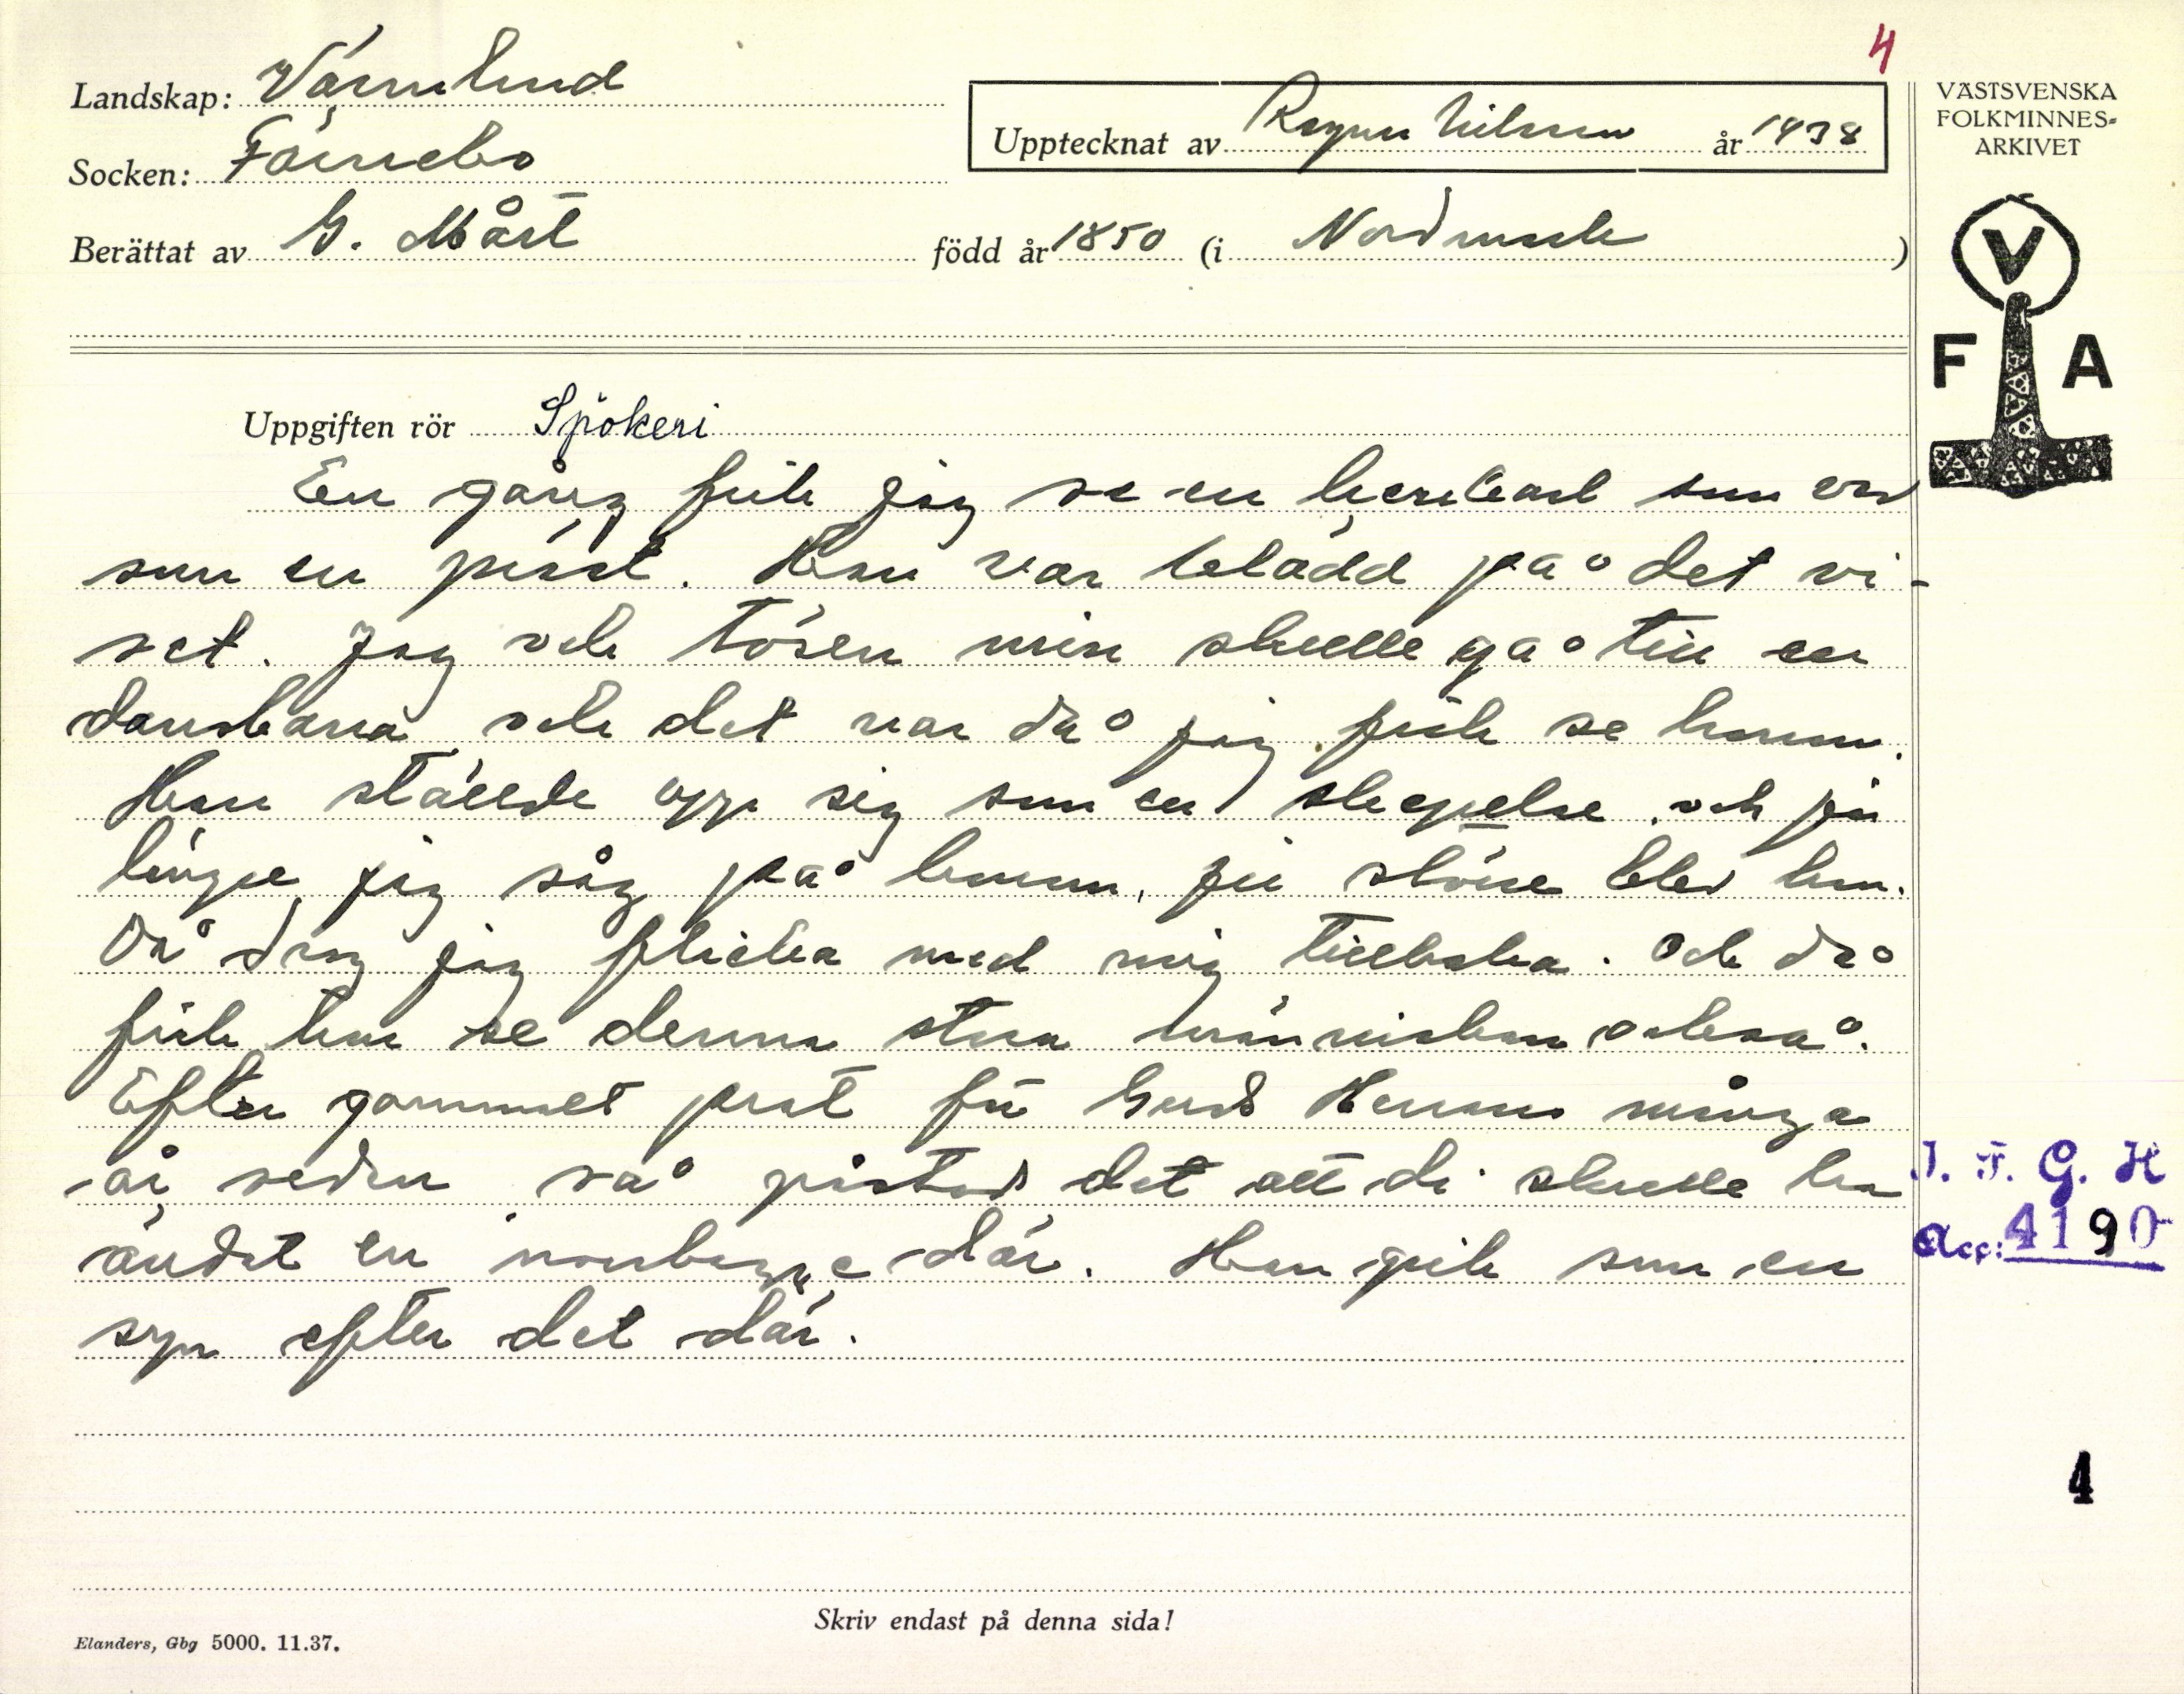 4
Landskap: Värmland
Socken: Färnebo
Berättat av G. Måst
Upptecknat av Ragnar Nilsson år 1938
född år 1850 (i Nordmark )
VÄSTSVENSKA
FOLKMINNES-
ARKIVET
V
F A
Uppgiften rör Spökeri
En gång fick jag se en karl som var
som en präst. Han var klädd på det vi-
set. Jag och tösen min skulle gå till en
dansbana och det var då jag fick se honom.
Han ställde opp sig som en skepelse och ju
längre jag såg på honom, ju större blev han.
Då drog jag flicka med mig tillbaka. Och då
fick hon se denna stora människan också.
Efter gammat prat för Guds Herrans många
år sedan så påstods det att di skulle ha
ändat en norbagge där. Han gick som en
syn efter det där.
I. F. G. H
Acc: 4190
4
Skriv endast på denna sida!
Elanders, Gbg 5000. 11.37.